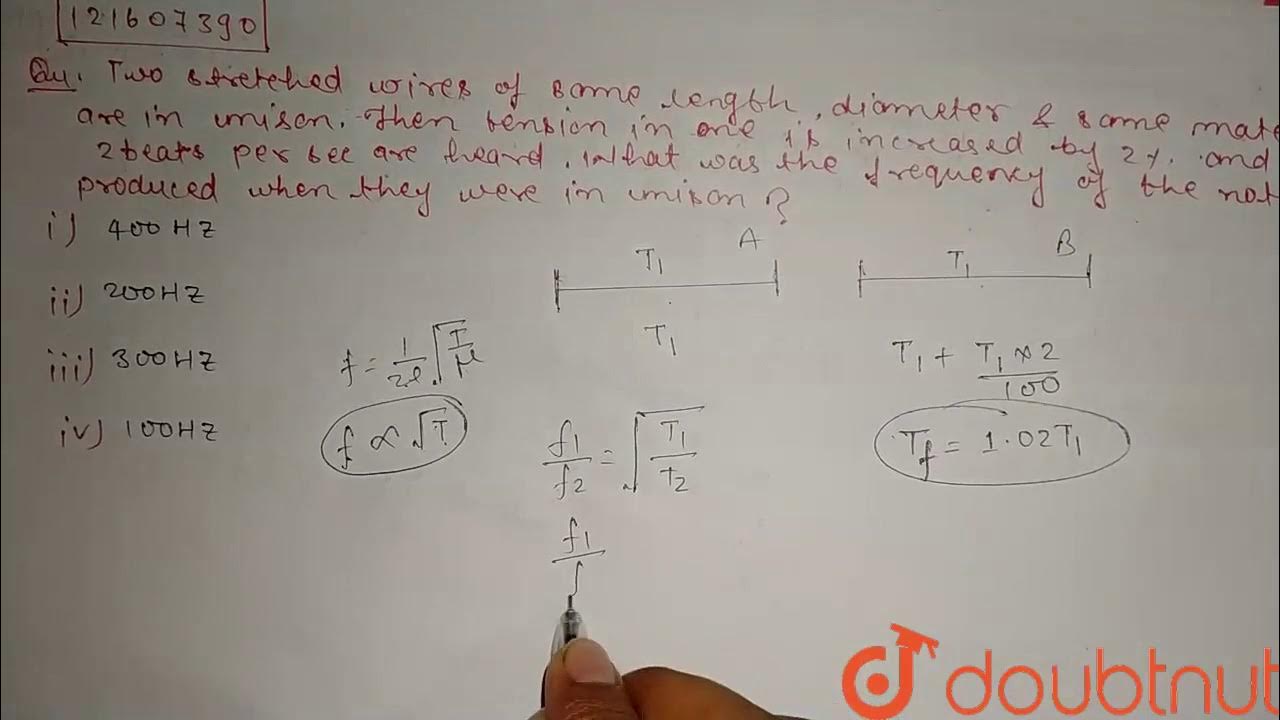 121607390
Qu. Two stretched wires of same length, diameter & same mate
are in unison. Then tension in one is increased by 2%. and
2 beats per sec are heard. What was the frequency of the not
produced when they were in unison?
i) 400 HZ
ii) 200HZ
iii) 300HZ
iv) 100HZ
T₁ A
T₁ B
T₁
f = 1/2l √T/μ
f ∝ √T
f₁/f₂ = √T₁/T₂
f₁
T₁ + T₁×2/100
T_f = 1.02T₁
doubtnut